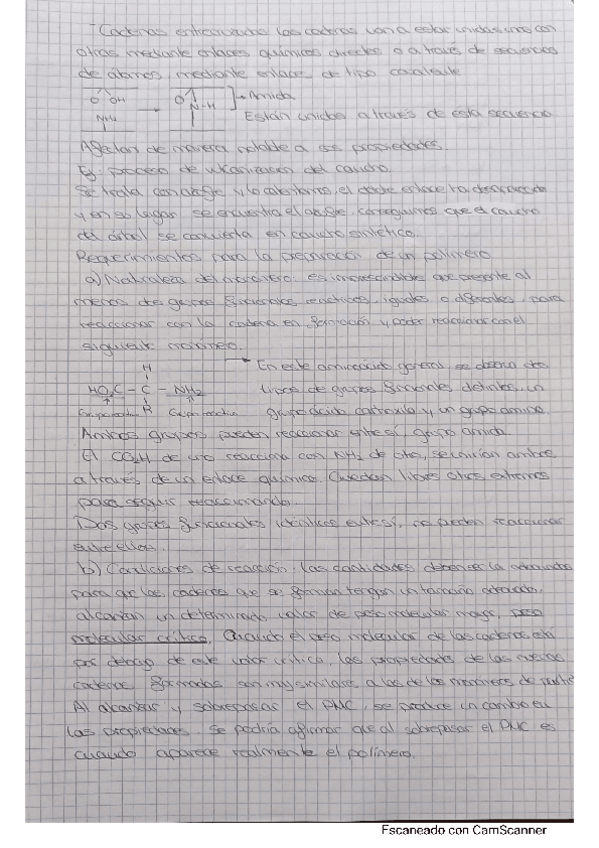 - Cadenas entrecruzadas: las cadenas van a estar unidas unas con
otras mediante enlaces químicos directos o a través de secuencias
de átomos, mediante enlaces de tipo covalente
O OH → O N-H } → Amida
NH₂ Están unidas a través de esta secuencia
Afectan de manera notable a sus propiedades.
Ej: proceso de vulcanización del caucho.
Se trata con azufre y lo calentamos, el doble enlace ha desaparecido
y en su lugar se encuentra el azufre, conseguimos que el caucho
del árbol se convierta en caucho sintético.
Requerimientos para la preparación de un polímero
a) Naturaleza del monómero. Es imprescindible que presente al
menos dos grupos funcionales, reactivos, iguales o diferentes, para
reaccionar con la cadena en formación y poder reaccionar con el
siguiente monómero.
H → En este aminoácido general, se observa dos
HO₂C - C - NH₂ tipos de grupos funcionales distintos, un
R grupo ácido carboxilo y un grupo amino.
Ambos grupos pueden reaccionar entre sí, grupo amida.
El CO₂H de uno reacciona con NH₂ de otro, se unirían ambos
a través de un enlace químico. Quedan libres otros extremos
para seguir reaccionando.
Dos grupos funcionales idénticos entre sí, no pueden reaccionar
entre ellos.
b) Condiciones de reacción: las cantidades deben ser la adecuadas
para que las cadenas que se forman tengan un tamaño adecuado,
alcanzan un determinado valor de peso molecular mayor, peso
molecular crítico. Cuando el peso molecular de las cadenas está
por debajo de este valor crítico, las propiedades de las nuevas
cadenas formadas son muy similares a las de los monómeros de partida
Al alcanzar y sobrepasar el PMC, se produce un cambio en
las propiedades. Se podría afirmar que al sobrepasar el PMC es
cuando aparece realmente el polímero.
Escaneado con CamScanner